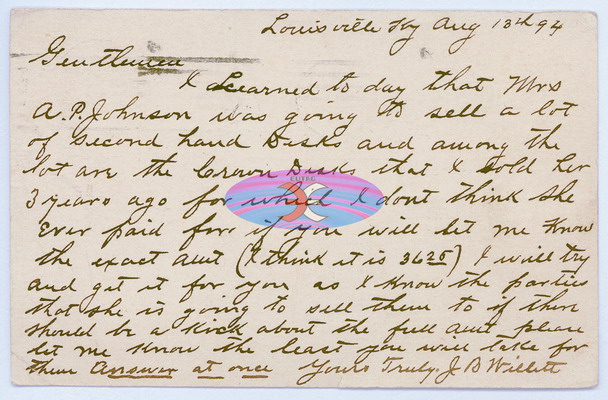 Louisville Ky Aug 13th 94
Gentlemen
I Learned to day that Mrs
A.P. Johnson was going to sell a lot
of second hand Desks and among the
lot are the Crown Desks that I sold her
3 years ago for which I dont think she
Ever paid for if you will let me Know
the exact amt (I think it is 36 25) I will try
and get it for you as I Know the parties
that she is going to sell them to if there
should be a Kick about the full amt please
let me Know the least you will take for
them Answer at once Yours Truly. J B Willett